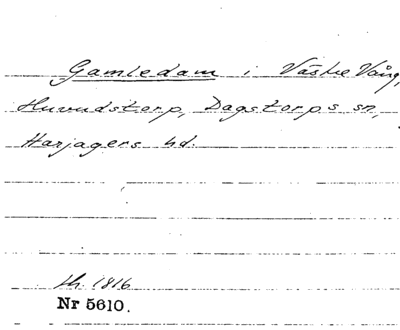 Gamledam i Västre Vång,
Huvudstorp, Dagstorps sn,
Harjagers hd.
th. 1816
Nr 5610.